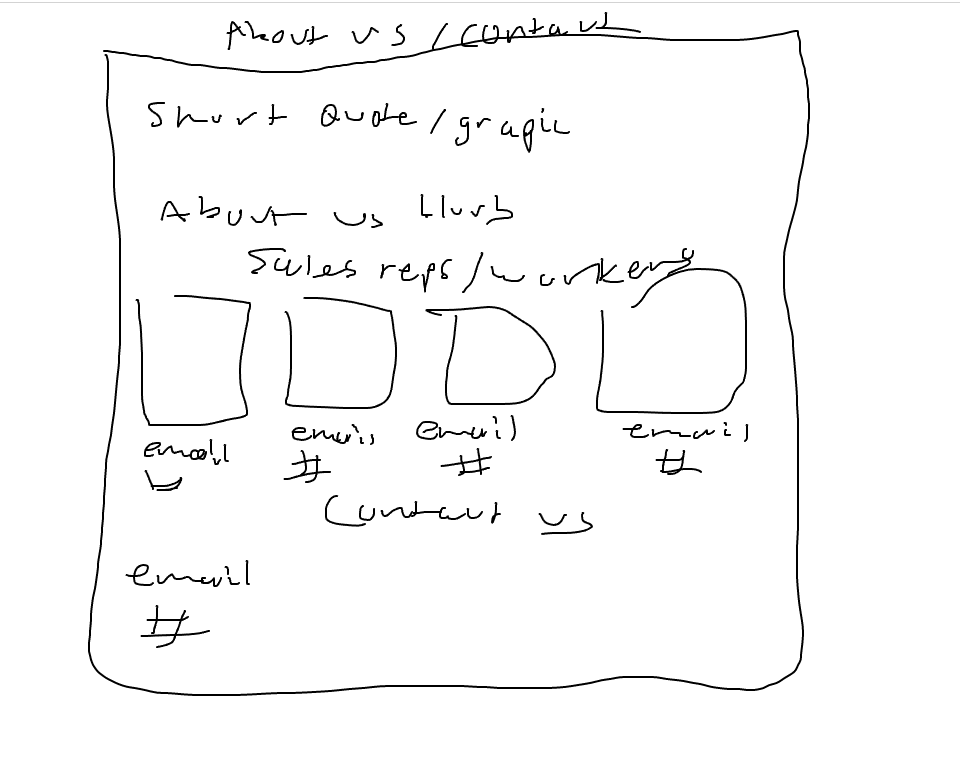 About us / contact
Short Quote/grapic
About us blurb
Sales reps/workers
email email email email
# # #
Contact us
email
#